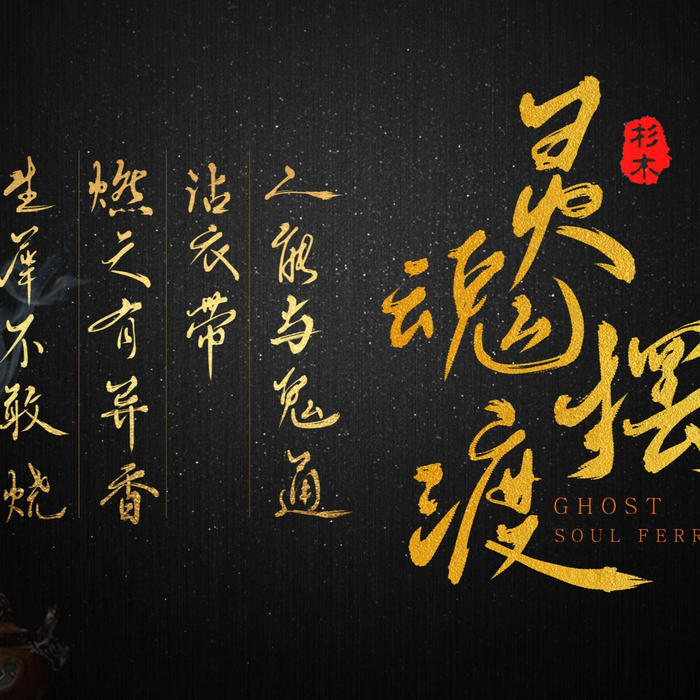 生犀不敢烧
燃之有异香
沾衣带
人能与鬼通
灵魂摆渡
杉木
GHOST
SOUL FERR